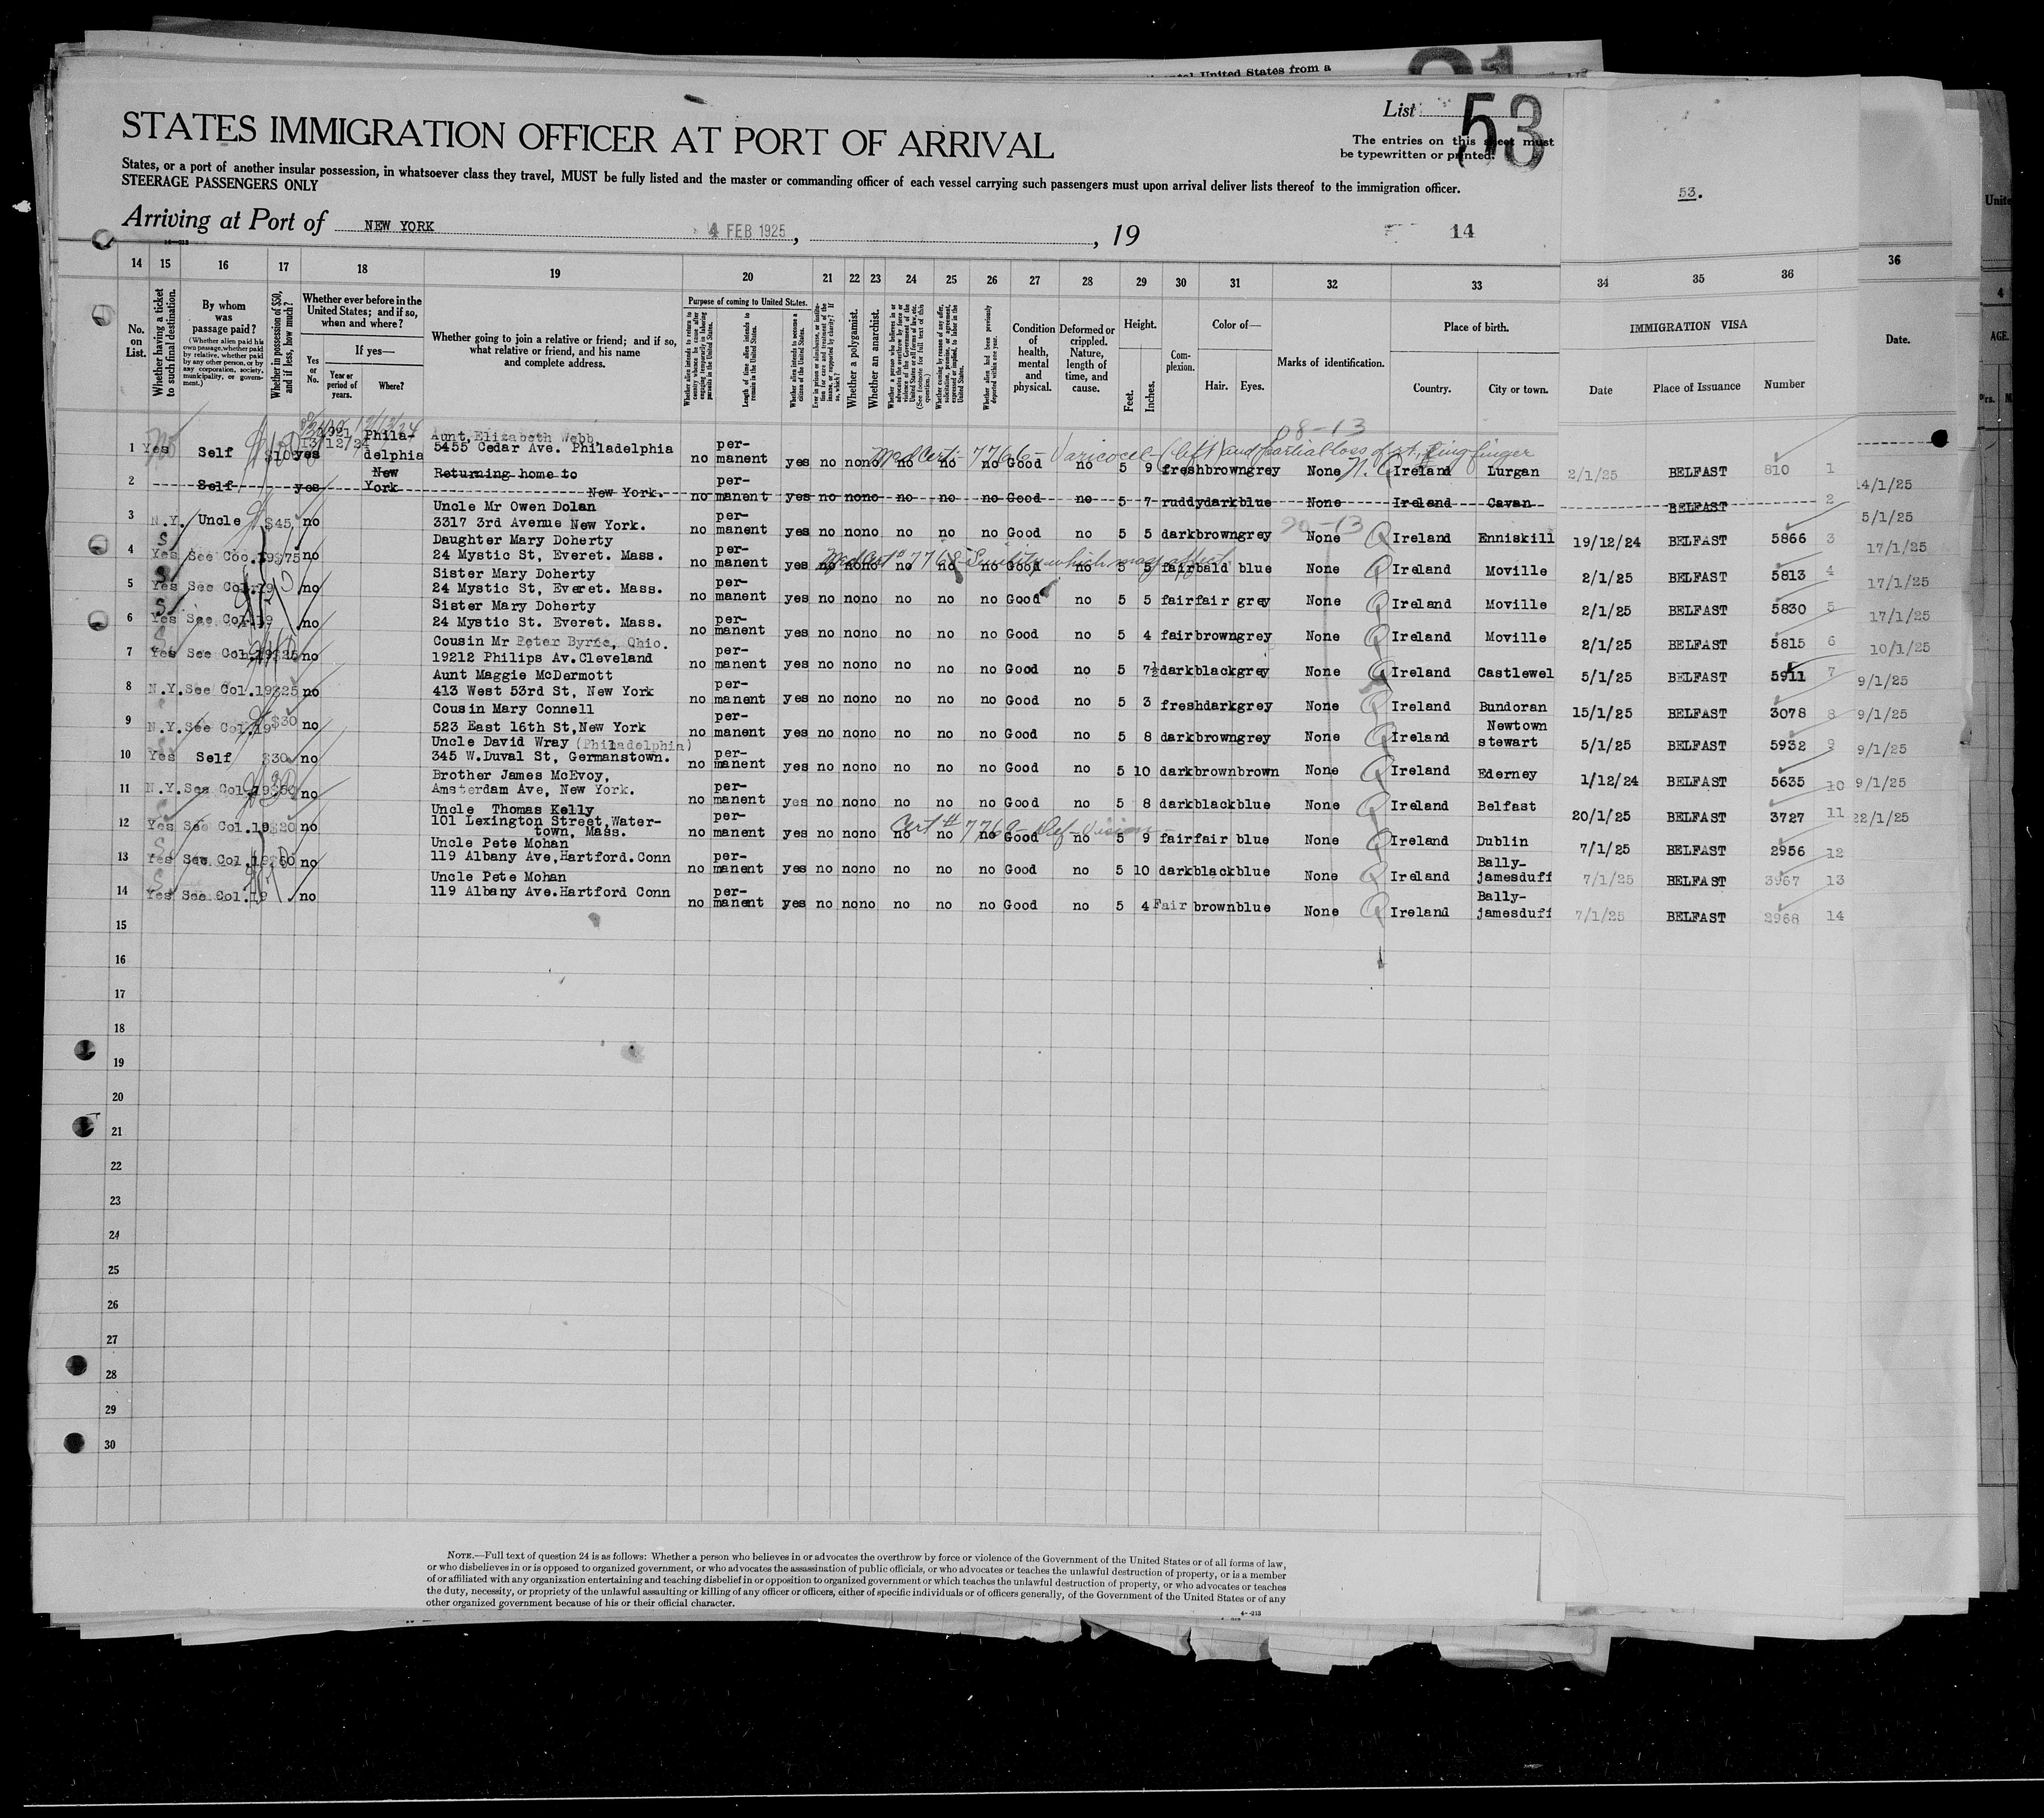 ntal United States from a
List 53
STATES IMMIGRATION OFFICER AT PORT OF ARRIVAL
The entries on this sheet must
be typewritten or printed.
States, or a port of another insular possession, in whatsoever class they travel, MUST be fully listed and the master or commanding officer of each vessel carrying such passengers must upon arrival deliver lists thereof to the immigration officer.
STEERAGE PASSENGERS ONLY
53.
Arriving at Port of NEW YORK 4 FEB 1925, , 19 14
14 15 16 17 18 19 20 21 22 23 24 25 26 27 28 29 30 31 32 33 34 35 36 36
No. on List.
Whether having a ticket to such final destination.
By whom was passage paid?
(Whether alien paid his own passage, whether paid by relative, whether paid by any other person, or by any corporation, society, municipality, or government.)
Whether in possession of $50, and if less, how much?
Whether ever before in the United States; and if so, when and where?
Yes or No.
If yes—
Year or period of years.
Where?
Whether going to join a relative or friend; and if so, what relative or friend, and his name and complete address.
Purpose of coming to United States.
Whether alien intends to return to country whence he came after engaging temporarily in laboring pursuits in the United States.
Length of time alien intends to remain in the United States.
Whether alien intends to become a citizen of the United States.
Whether a polygamist.
Whether an anarchist.
Condition of health, mental and physical.
Deformed or crippled. Nature, length of time, and cause.
Height.
Feet.
Inches.
Complexion.
Color of—
Hair.
Eyes.
Marks of identification.
Place of birth.
Country.
City or town.
IMMIGRATION VISA
Date
Place of Issuance
Number
Date.
08-13
Med Cert- 7766- Varicocele (left) and partial loss of rt. ring finger
1 Yes No Self $10 yes 13/12/24 Phila-delphia Aunt, Elizabeth Webb 5455 Cedar Ave. Philadelphia no per-manent yes no no no no no no Good no 5 9 fresh brown grey None Ireland Lurgan 2/1/25 BELFAST 810 1
2 Self yes New York Returning home to New York. no per-manent yes no no no no no no Good no 5 7 ruddy dark blue None Ireland Cavan BELFAST 2 14/1/25
3 N.Y. Uncle $45 no Uncle Mr Owen Dolan 3317 3rd Avenue New York. no per-manent yes no no no no no no Good no 5 5 dark brown grey None Ireland Enniskill 19/12/24 BELFAST 5866 3 5/1/25
20-13
Med Cert # 7768- Senility which may affect
4 Yes See Coo.19 $75 no Daughter Mary Doherty 24 Mystic St, Everet. Mass. no per-manent yes no no no no no no Good no 5 5 fair bald blue None Ireland Moville 2/1/25 BELFAST 5813 4 17/1/25
5 Yes See Col.19 no Sister Mary Doherty 24 Mystic St, Everet. Mass. no per-manent yes no no no no no no Good no 5 5 fair fair grey None Ireland Moville 2/1/25 BELFAST 5830 5 17/1/25
6 Yes See Col.19 no Sister Mary Doherty 24 Mystic St. Everet. Mass. no per-manent yes no no no no no no Good no 5 4 fair brown grey None Ireland Moville 2/1/25 BELFAST 5815 6 17/1/25
7 Yes See Col.19 $25 no Cousin Mr Peter Byrne, Ohio. 19212 Philips Av.Cleveland no per-manent yes no no no no no no Good no 5 7½ dark black grey None Ireland Castlewel 5/1/25 BELFAST 5911 7 10/1/25
8 N.Y. See Col.19 $25 no Aunt Maggie McDermott 413 West 53rd St, New York no per-manent yes no no no no no no Good no 5 3 fresh dark grey None Ireland Bundoran 15/1/25 BELFAST 3078 8 9/1/25
9 N.Y. See Col.19 $30 no Cousin Mary Connell 523 East 16th St,New York no per-manent yes no no no no no no Good no 5 8 dark brown grey None Ireland Newtown stewart 5/1/25 BELFAST 5932 9 9/1/25
10 Yes Self $30 no Uncle David Wray (Philadelphia) 345 W.Duval St, Germanstown. no per-manent yes no no no no no no Good no 5 10 dark brown brown None Ireland Ederney 1/12/24 BELFAST 5635 10 9/1/25
11 N.Y. See Col.19 $50 no Brother James McEvoy, Amsterdam Ave, New York. no per-manent yes no no no no no no Good no 5 8 dark black blue None Ireland Belfast 20/1/25 BELFAST 3727 11 9/1/25
Cert # 7769- Def- Vision-
12 Yes See Col.19 $20 no Uncle Thomas Kelly 101 Lexington Street,Water-town, Mass. no per-manent yes no no no no no no Good no 5 9 fair fair blue None Ireland Dublin 7/1/25 BELFAST 2956 12 22/1/25
13 Yes See Col.19 $50 no Uncle Pete Mohan 119 Albany Ave,Hartford.Conn no per-manent yes no no no no no no Good no 5 10 dark black blue None Ireland Bally-jamesduff 7/1/25 BELFAST 3967 13
14 Yes See Col.19 no Uncle Pete Mohan 119 Albany Ave.Hartford Conn no per-manent yes no no no no no no Good no 5 4 Fair brown blue None Ireland Bally-jamesduff 7/1/25 BELFAST 2968 14
15
16
17
18
19
20
21
22
23
24
25
26
27
28
29
30
NOTE.—Full text of question 24 is as follows: Whether a person who believes in or advocates the overthrow by force or violence of the Government of the United States or of all forms of law,
or who disbelieves in or is opposed to organized government, or who advocates the assassination of public officials, or who advocates or teaches the unlawful destruction of property, or is a member
of or affiliated with any organization entertaining and teaching disbelief in or opposition to organized government or which teaches the unlawful destruction of property, or who advocates or teaches
the duty, necessity, or propriety of the unlawful assaulting or killing of any officer or officers, either of specific individuals or of officers generally, of the Government of the United States or of any
other organized government because of his or their official character.